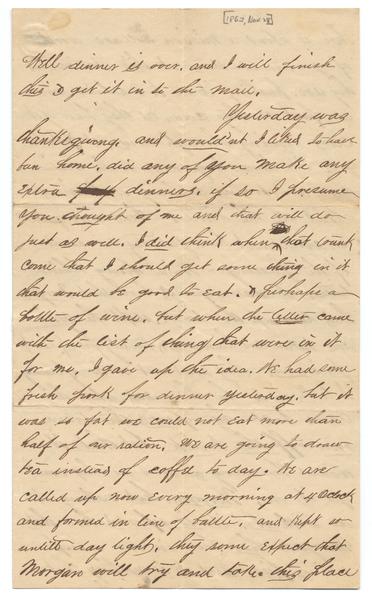 [1862, Nov 28]
Well dinner is over. and I will finish
this & get it in to the mail.
Yesterday was
thanksgiving. and would'nt I liked to have
bin home, did any of you make any
Extra dinners. if so I presume
you thought of me and that will do
just as well. I did think when that trunk
come that I should get some thing in it
that would be good to eat. & perhaps a
bottle of wine. but when the letter came
with the list of thing that were in it
for me. I gave up the idea. We had some
fresh pork for dinner yesterday. but it
was so fat we could not eat more than
half of our ration. We are going to draw
tea instead of coffe to day. We are
called up now every morning at 4 Oclock
and formed in line of battle, and kept so
untill day light. they some expect that
Morgan will try and take this place